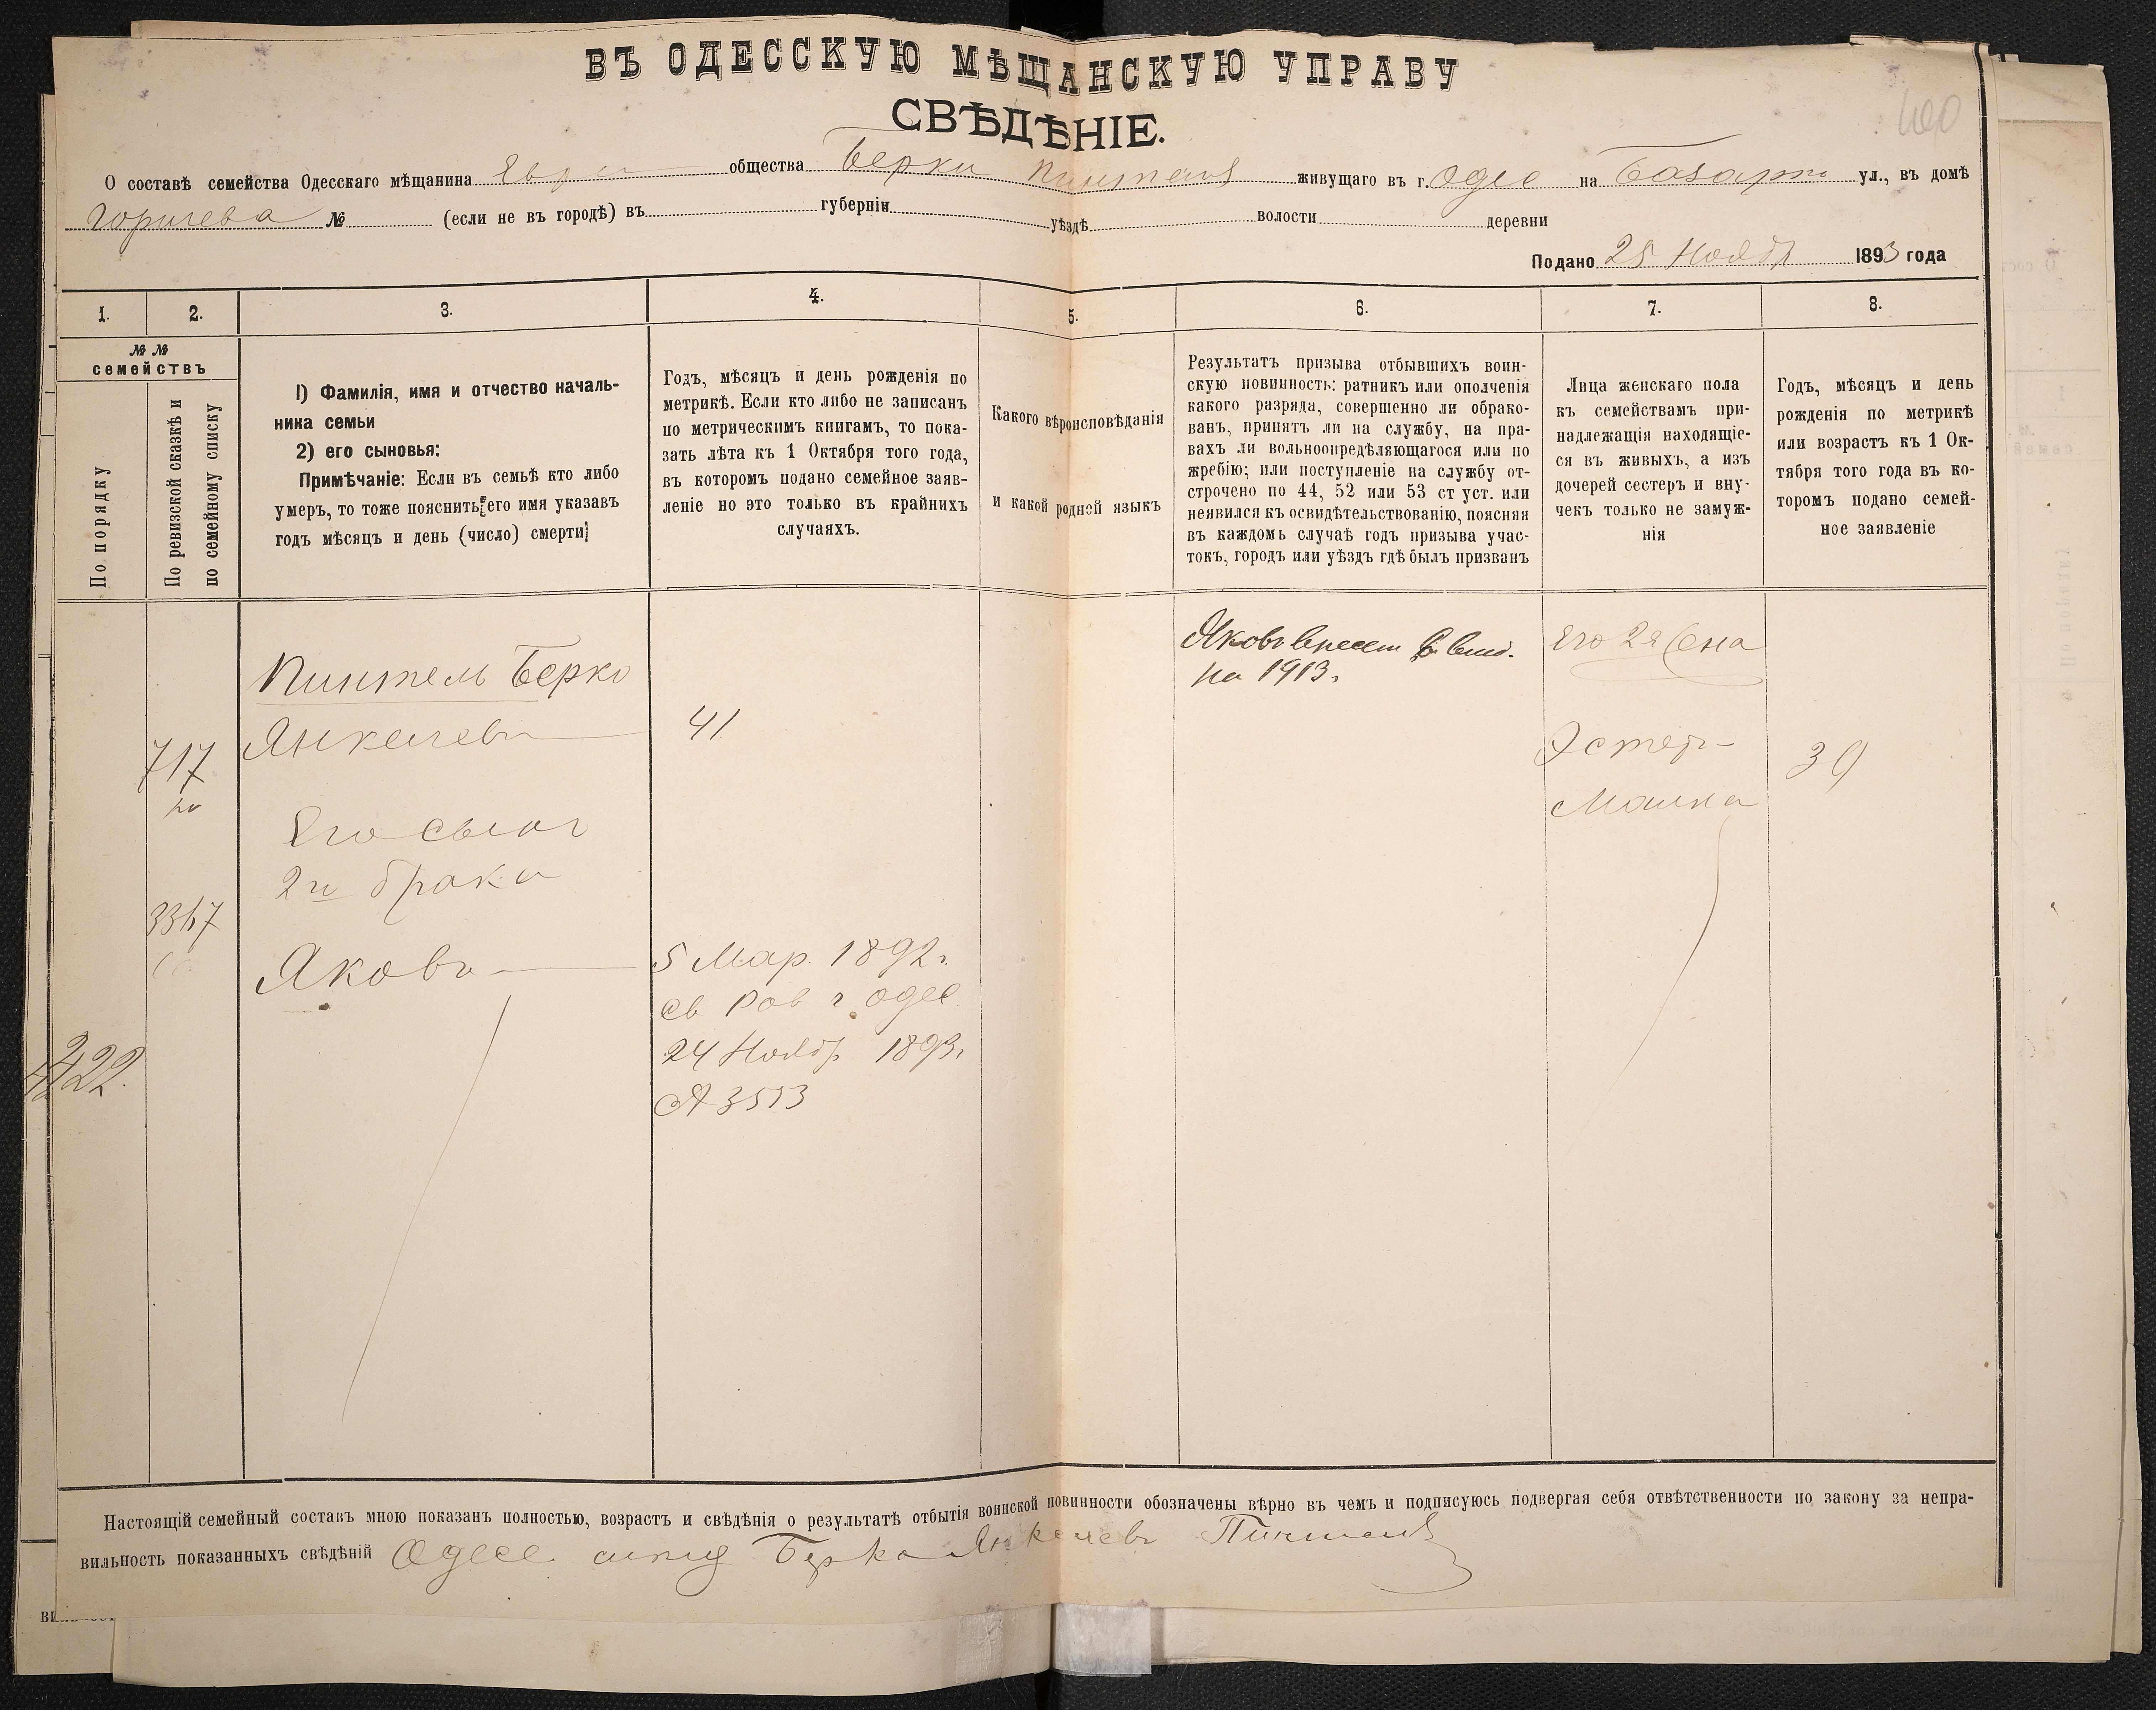 ВЪ ОДЕССКУЮ МѢЩАНСКУЮ УПРАВУ
СВѢДѢНІЕ.
О составѣ семейства Одесскаго мѣщанина Евр общества Берки Пинтель живущаго въ г. Одес на Базарн ул., въ домѣ
Горичева № (если не въ городѣ) въ губерніи уѣздѣ волости деревни
Подано 25 Нояб 1893 года
1. 2. 3. 4. 5. 6. 7. 8.
№ №
семействъ
По порядку
По ревизской сказкѣ и
по семейному списку
1) Фамилія, имя и отчество началь-
ника семьи
2) его сыновья:
Примѣчаніе: Если въ семьѣ кто либо
умеръ, то тоже пояснить его имя указавъ
годъ мѣсяцъ и день (число) смерти
Годъ, мѣсяцъ и день рожденія по
метрикѣ. Если кто либо не записанъ
по метрическимъ книгамъ, то пока-
зать лѣта къ 1 Октября того года,
въ которомъ подано семейное заяв-
леніе но это только въ крайнихъ
случаяхъ.
Какого вѣроисповѣданія
и какой родной языкъ
Результатъ призыва отбывшихъ воин-
скую повинность: ратникъ или ополченія
какого разряда, совершенно ли обрако-
ванъ, принятъ ли на службу, на пра-
вахъ ли вольноопредѣляющагося или по
жребію; или поступленіе на службу от-
строчено по 44, 52 или 53 ст уст. или
неявился къ освидѣтельствованію, поясняя
въ каждомъ случаѣ годъ призыва учас-
токъ, городъ или уѣздъ гдѣ былъ призванъ
Лица женскаго пола
къ семействамъ при-
надлежащія находящіе-
ся въ живыхъ, а изъ
дочерей сестеръ и вну-
чекъ только не замуж-
нія
Годъ, мѣсяцъ и день
рожденія по метрикѣ
или возрастъ къ 1 Ок-
тября того года въ ко-
торомъ подано семей-
ное заявленіе
Пинтель Берко
Янкелевъ
717
41
Его сынъ
2го брака
3367
Яковъ
5 Мар. 1892 г.
св Рав г. Одес
24 Нояб 1893 г.
№ 3513
Яковъ внесен в
на 1913 г.
Его 2я жена
Эстер-
Малка
39
422.
Настоящій семейный составъ мною показанъ полностью, возрастъ и свѣдѣнія о результатѣ отбытія воинской повинности обозначены вѣрно въ чемъ и подписуюсь подвергая себя отвѣтственности по закону за непра-
вильность показанныхъ свѣдѣній Одесс. Берко Янкелевъ Пинтель